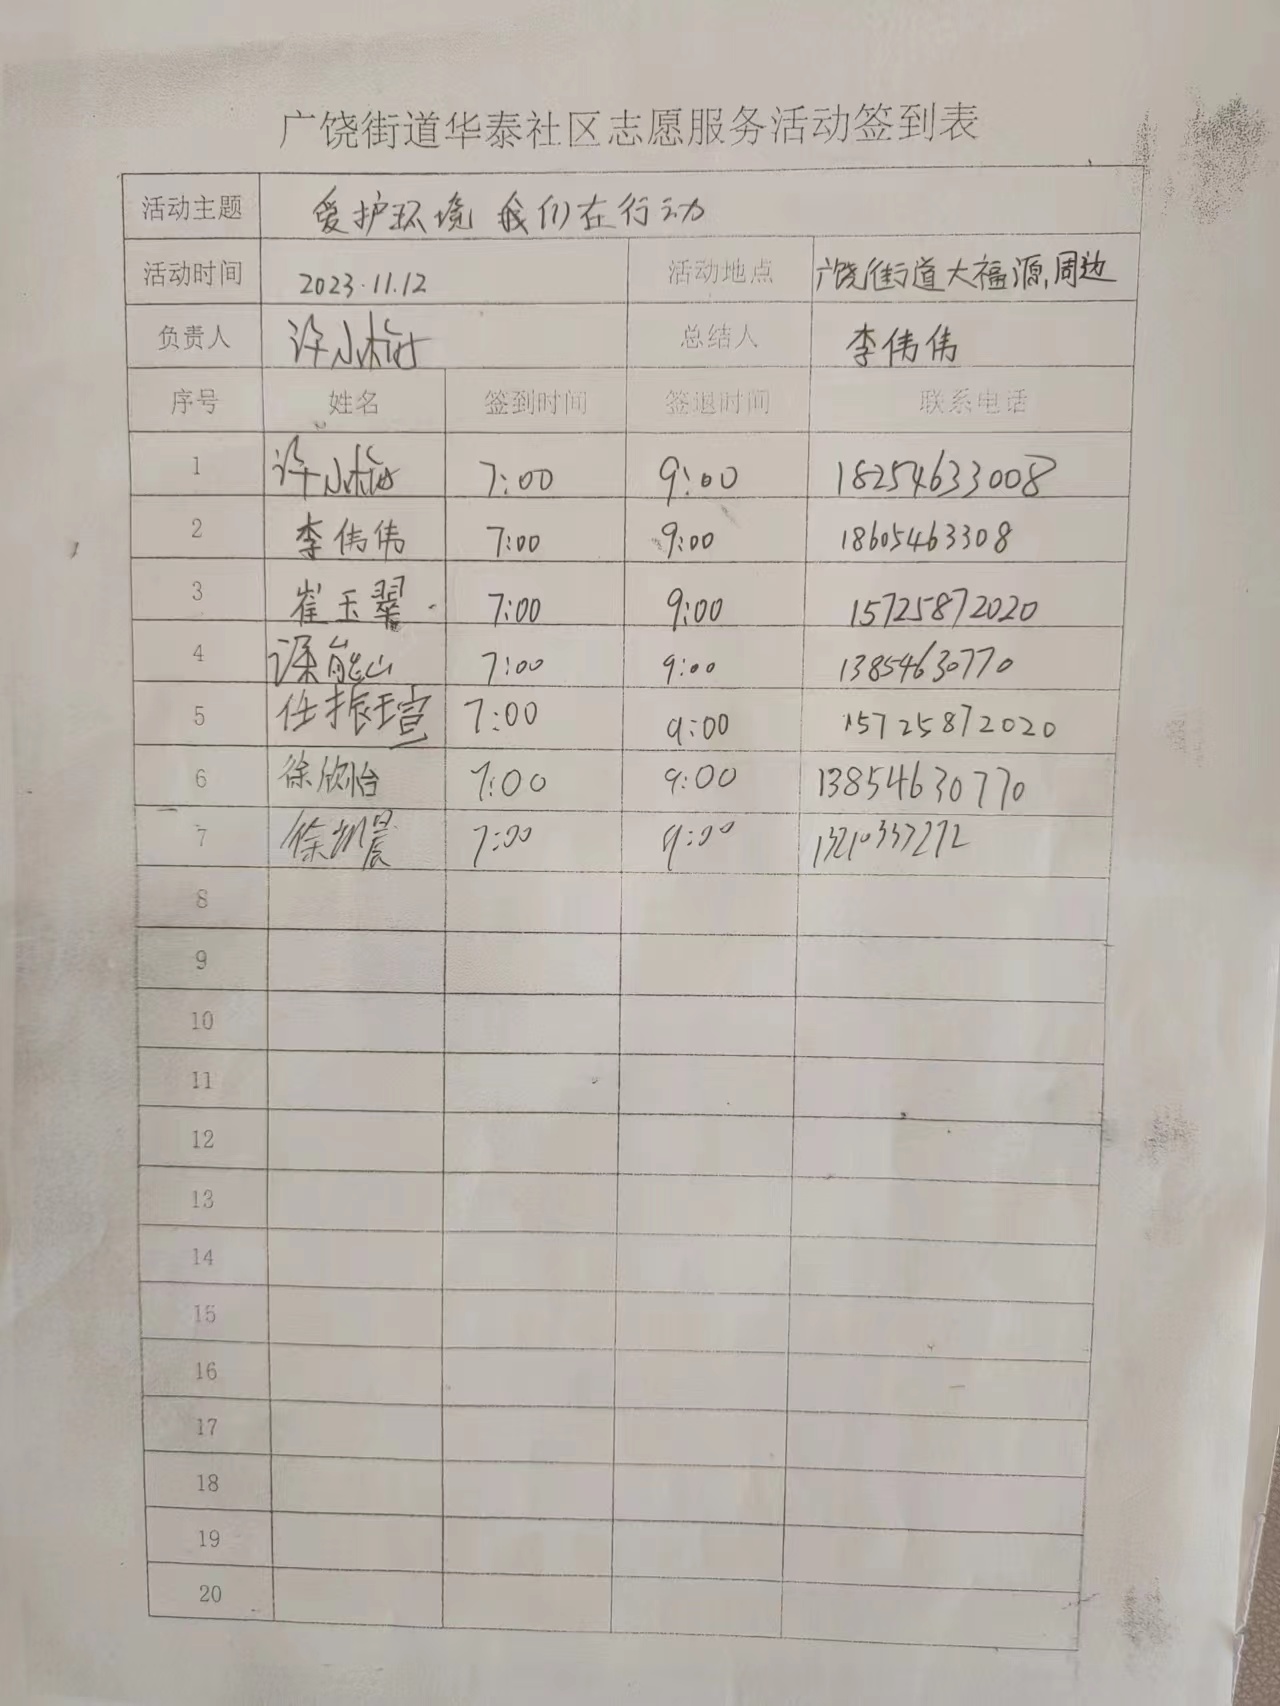 广饶街道华泰社区志愿服务活动签到表
活动主题 爱护环境 我们在行动
活动时间 2023.11.12 活动地点 广饶街道大福源,周边
负责人 许小梅 总结人 李伟伟
序号 姓名 签到时间 签退时间 联系电话
1 许小梅 7:00 9:00 18254633008
2 李伟伟 7:00 9:00 18605463308
3 崔玉翠 7:00 9:00 15725872020
4 7:00 9:00 13854630770
5 任振瑄 7:00 9:00 15725872020
6 徐欣怡 7:00 9:00 13854630770
7 徐凯晨 7:00 9:00
8
9
10
11
12
13
14
15
16
17
18
19
20